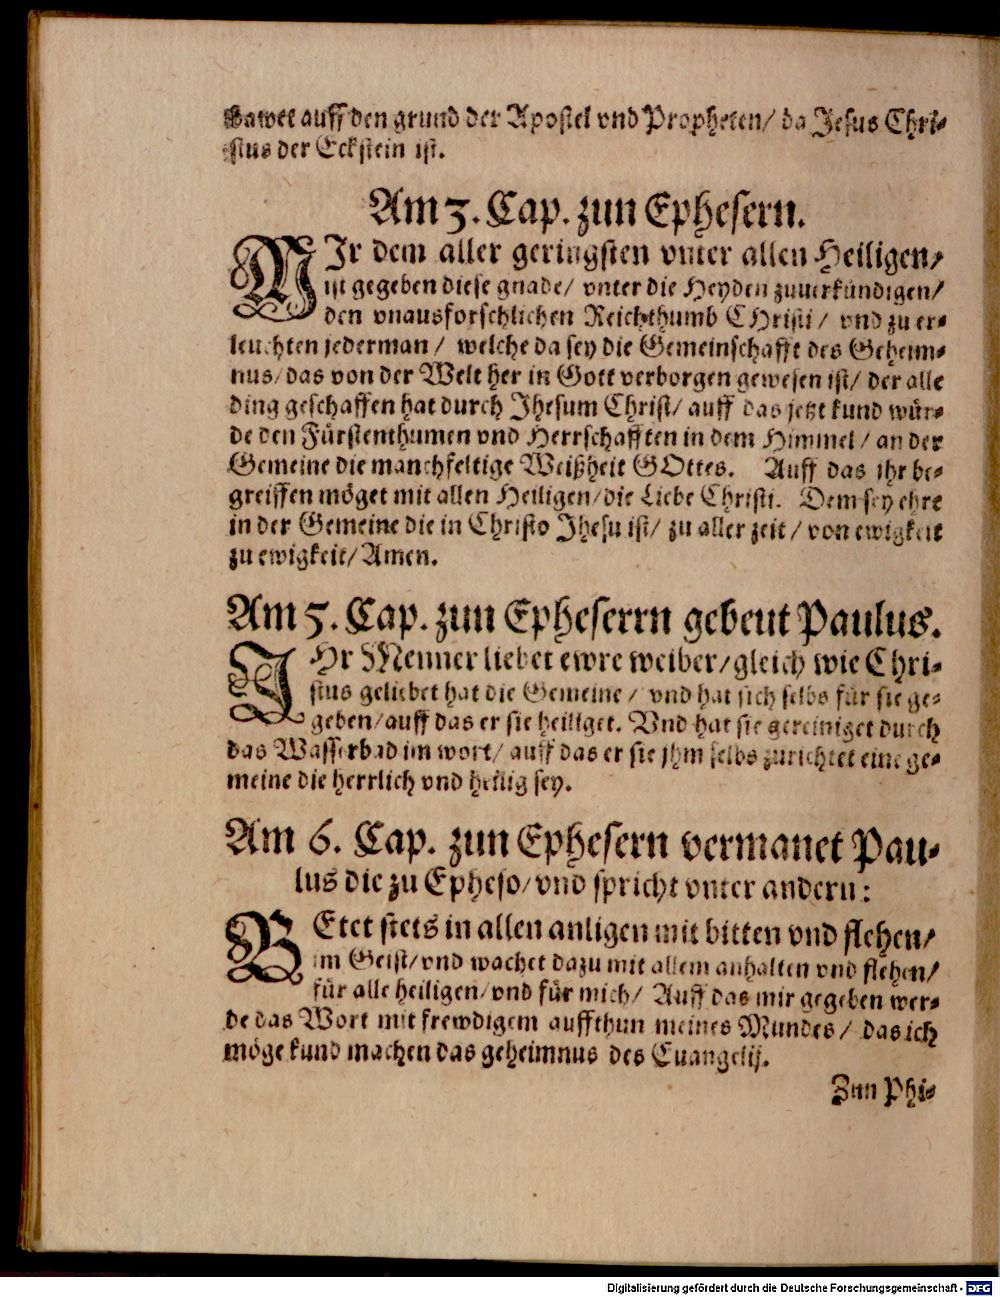 bawet auff den grund der Apostel vnd Propheten/ da Jesus Chri-
stus der Eckstein ist.
Am 3. Cap. zun Ephesern.
MIr dem aller geringsten vnter allen Heiligen/
ist gegeben diese gnade/ vnter die Heyden zuuerkündigen/
den vnausforschlichen Reichthumb CHristi/ vnd zu er-
leuchten jederman/ welche da sey die Gemeinschafft des Geheim-
nus/ das von der Welt her in Gott verborgen gewesen ist/ der alle
ding geschaffen hat durch Jhesum Christ/ auff das jetzt kund wür-
de den Fürstenthumen vnd Herrschafften in dem Himmel/ an der
Gemeine die manchfeltige Weißheit GOttes. Auff das ihr be-
greiffen möget mit allen Heiligen/ die Liebe Christi. Dem sey ehre
in der Gemeine die in Christo Jhesu ist/ zu aller zeit/ von ewigkeit
zu ewigkeit/ Amen.
Am 5. Cap. zun Epheserrn gebeut Paulus.
IHr Menner liebet ewre weiber/ gleich wie Chri-
stus geliebet hat die Gemeine/ vnd hat sich selbs für sie ge-
geben/ auff das er sie heiliget. Vnd hat sie gereiniget durch
das Wasserbad im wort/ auff das er sie jhm selbs zurichtet eine ge-
meine die herrlich vnd heilig sey.
Am 6. Cap. zun Ephesern vermanet Pau-
lus die zu Epheso/ vnd spricht vnter andern:
BEtet stets in allen anligen mit bitten vnd flehen/
im Geist/ vnd wachet dazu mit allem anhalten vnd flehen/
für alle heiligen/ vnd für mich/ Auff das mir gegeben wer-
de das Wort mit frewdigem auffthun meines Mundes/ das ich
möge kund machen das geheimnus des Euangelij.
Zun Phi-
Digitalisierung gefördert durch die Deutsche Forschungsgemeinschaft - DFG